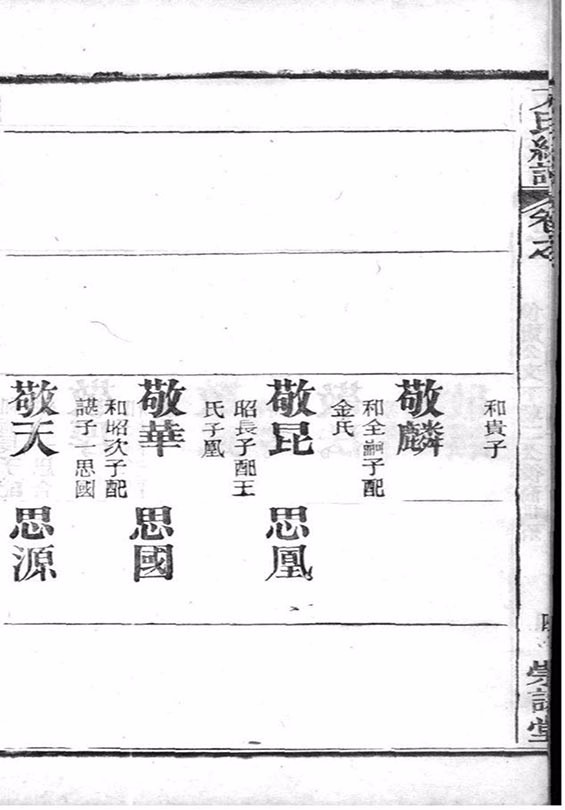 氏 譜 卷之
崇 堂
和貴子
敬麟
和全嗣子配
金氏
敬昆 思凰
昭長子配王
氏子凰
敬華 思國
和昭次子配
諶子一思國
敬天 思源